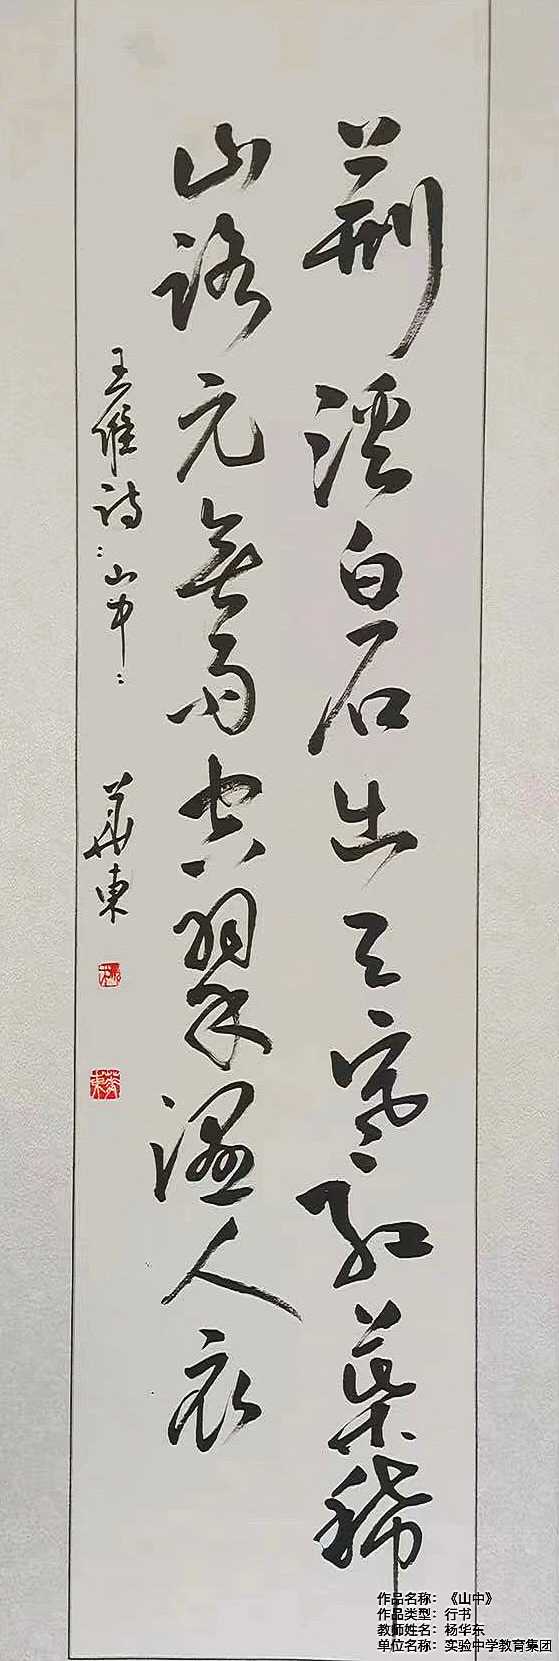 荆溪白石出天寒红葉稀
山路元無雨空翠濕人衣
王維詩:山中:
華東
華東
作品名称：《山中》
作品类型：行书
教师姓名：杨华东
单位名称：实验中学教育集团